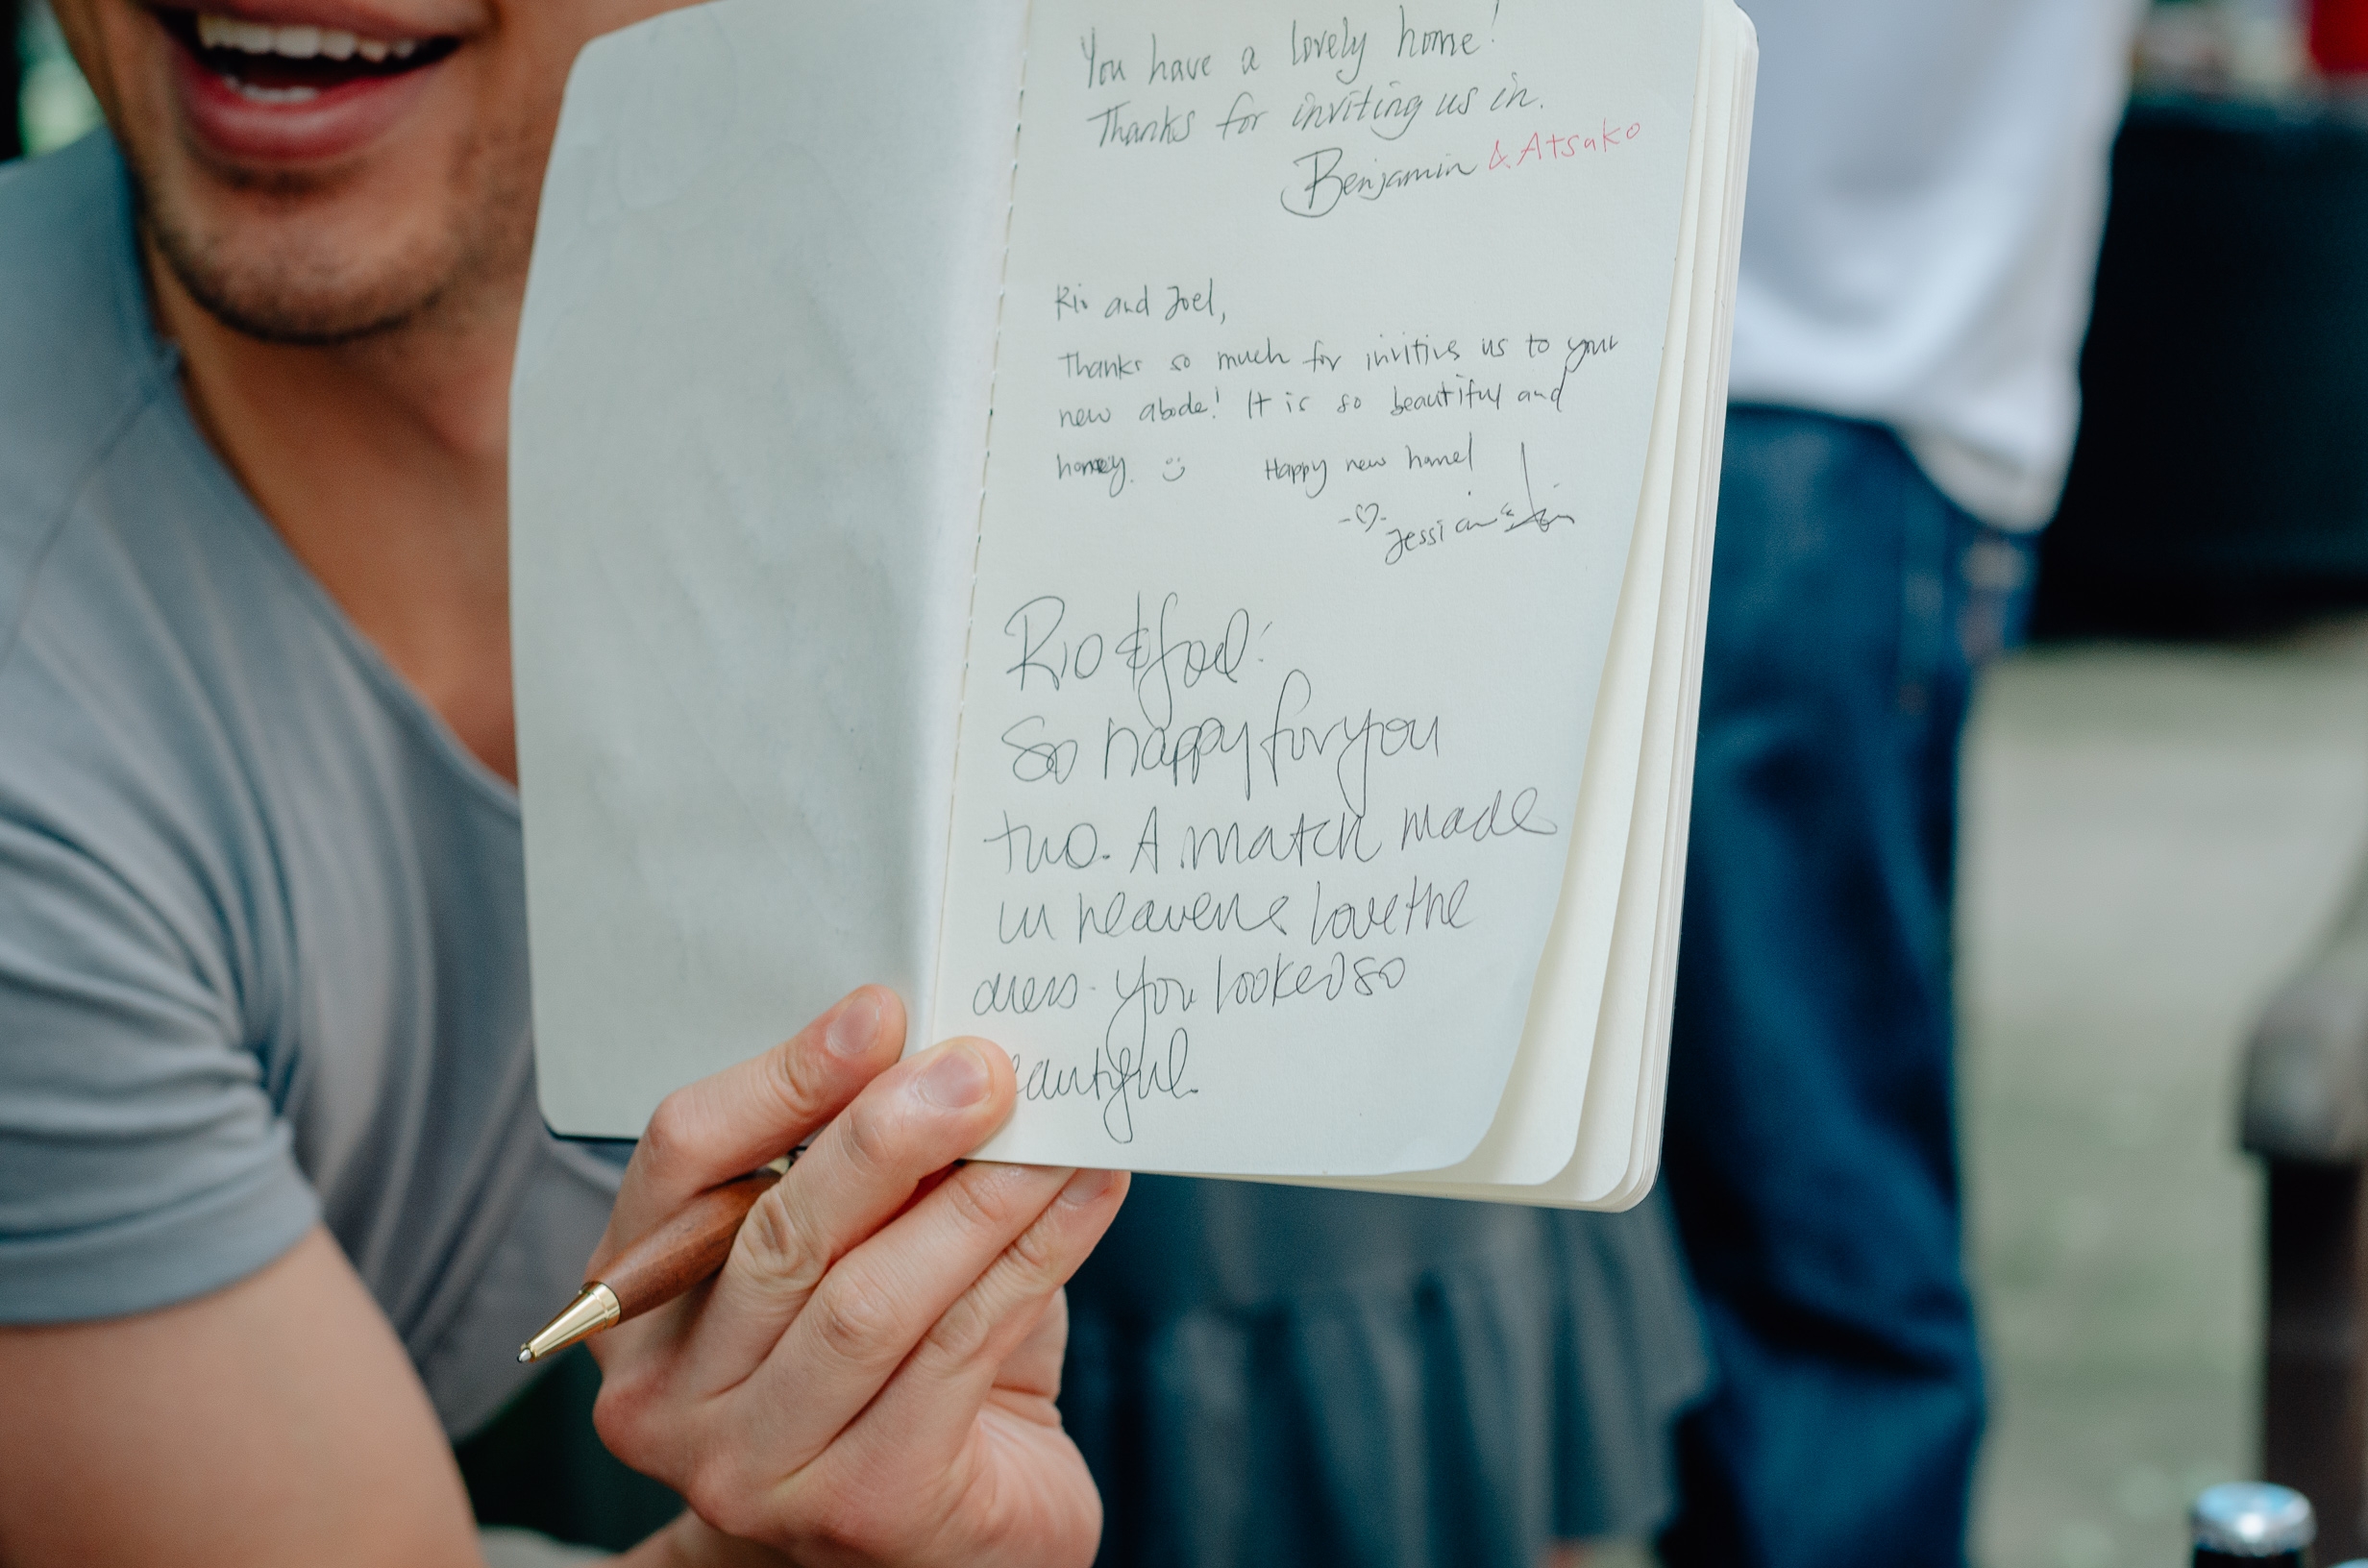 You have a lovely home!
Thanks for inviting us in.
Benjamin & Atsuko
Rio and Joel,
Thanks so much for inviting us to your
new abode! It is so beautiful and
homey. :) Happy new home!
-♡- Jessi
Rio & Joel:
So happy for you
two. A match made
in heaven & love the
dress. You looked so
eautiful.